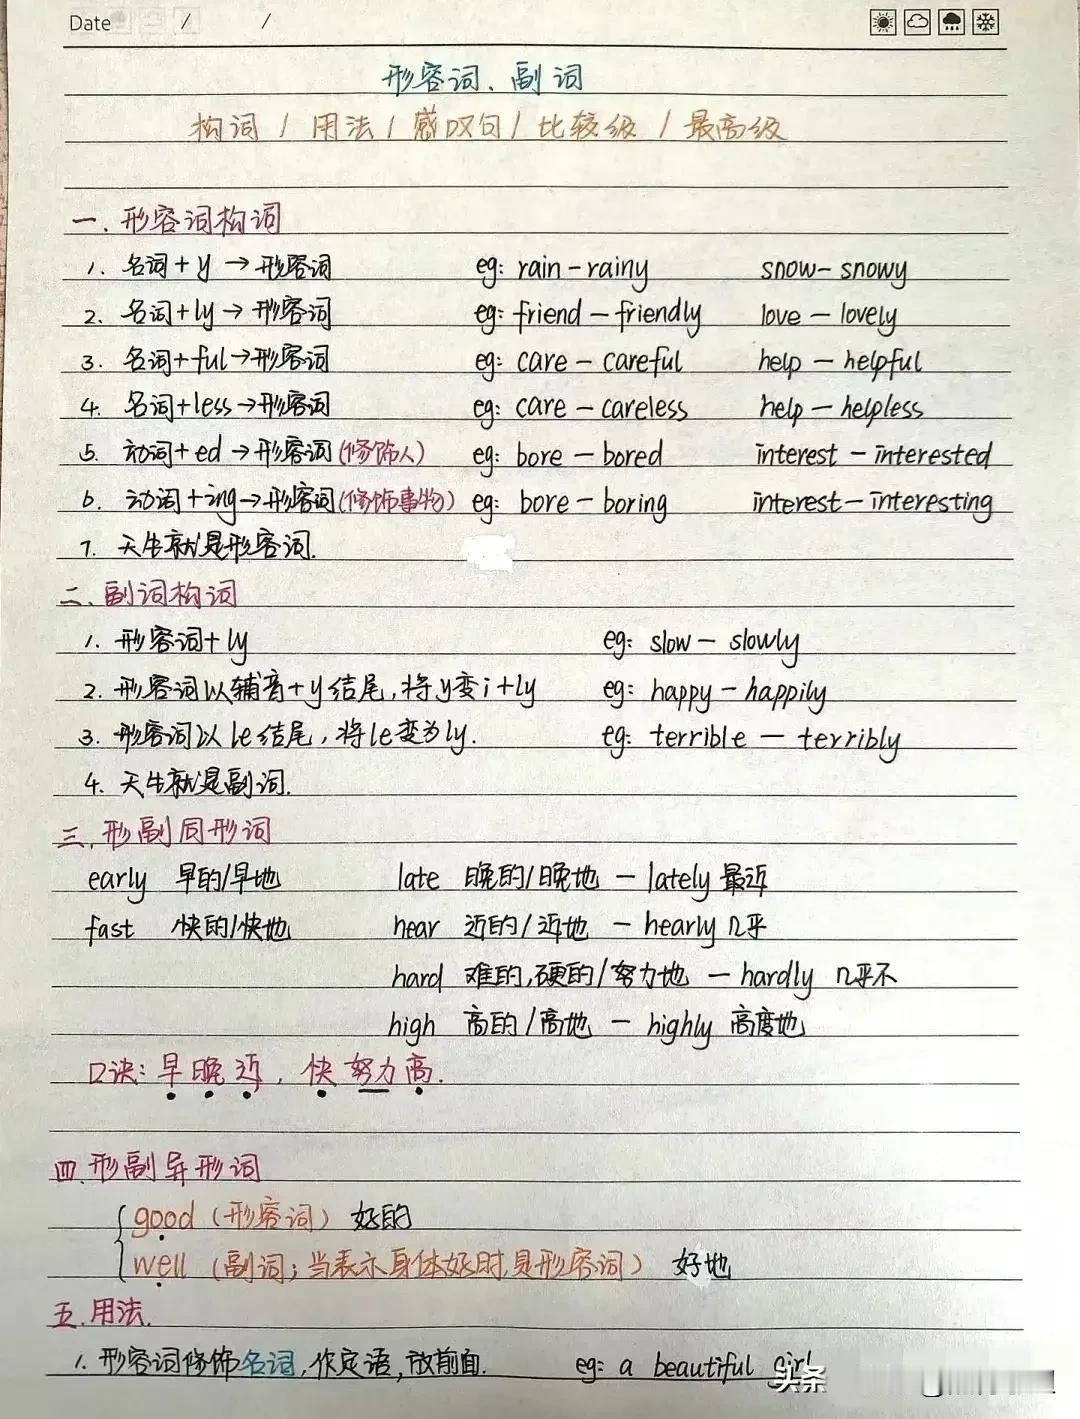 Date / /
形容词、副词
构词 / 用法 / 感叹句 / 比较级 / 最高级
一、形容词构词
1. 名词+y→形容词 eg: rain-rainy snow-snowy
2. 名词+ly→形容词 eg: friend-friendly love-lovely
3. 名词+ful→形容词 eg: care-careful help-helpful
4. 名词+less→形容词 eg: care-careless help-helpless
5. 动词+ed→形容词(修饰人) eg: bore-bored interest-interested
6. 动词+ing→形容词(修饰事物) eg: bore-boring interest-interesting
7. 天生就是形容词.
二、副词构词
1. 形容词+ly eg: slow-slowly
2. 形容词以辅音+y结尾,将y变i+ly eg: happy-happily
3. 形容词以le结尾,将le变为ly. eg: terrible-terribly
4. 天生就是副词.
三、形副同形词
early 早的/早地 late 晚的/晚地 - lately 最近
fast 快的/快地 near 近的/近地 - nearly 几乎
hard 难的,硬的/努力地 - hardly 几乎不
high 高的/高地 - highly 高度地
口诀: 早晚近, 快努力高.
四、形副异形词
good (形容词) 好的
well (副词; 当表示身体好时,是形容词) 好地
五.用法.
1. 形容词修饰名词,作定语,放前面. eg: a beautiful girl
头条